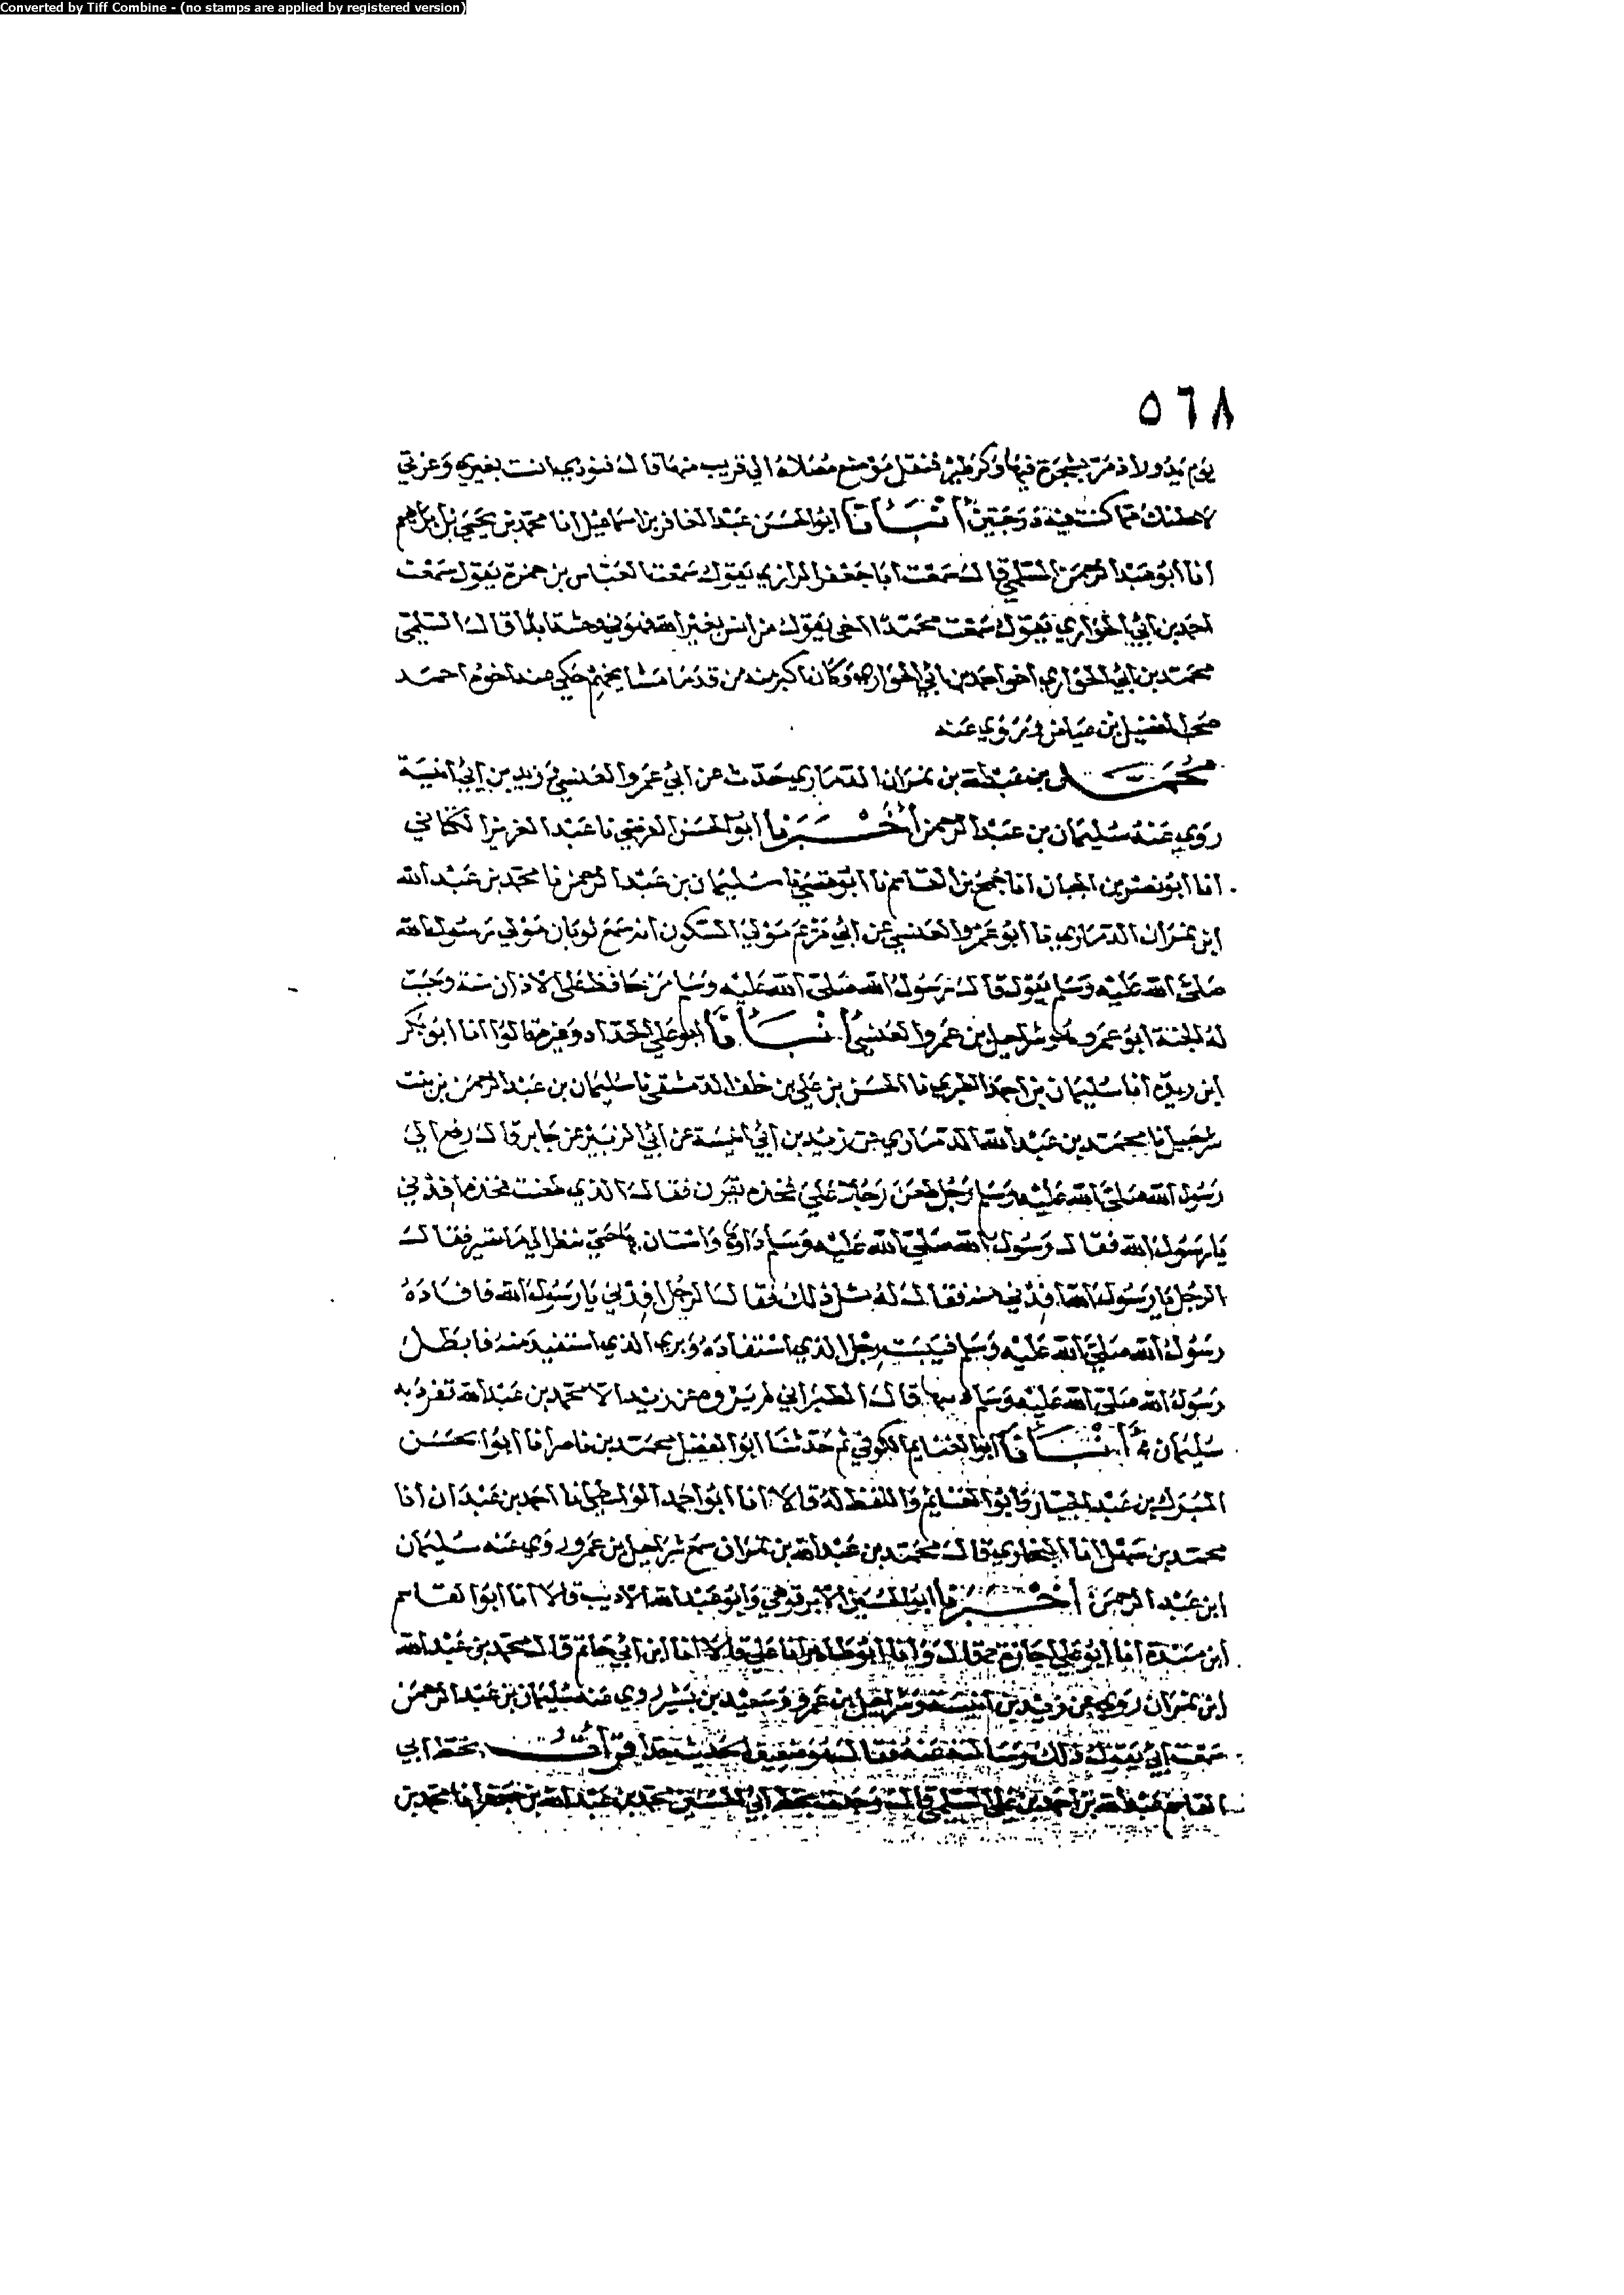 Converted by Tiff Combine - (no stamps are applied by registered version)
٥٦٨
فيها وكر طير فنقل موضع مصلاه الى قريب منها قال فنودي انست بغيري وعزتي
لاحطنك مما كنت فيه درجتين أنبأنا ابو الحسن عبد الغافر بن اسماعيل انا محمد بن يحيى بن ابراهيم
انا ابو عبد الرحمن السلمي قال سمعت ابا جعفر الرازي يقول سمعت العباس بن حمزة يقول سمعت
احمد بن ابي الحواري يقول سمعت محمدا اخي يقول من انس بغير الله فهو في وحشة ابدا قال السلمي
محمد بن ابي الحواري اخو احمد بن ابي الحواري وكان اكبر منه من قدما مشايخهم حكى عنه اخوه احمد
صحب الفضيل بن عياض وروي عنه
محمد بن عبد الله بن نمران الذماري حدث عن ابي عمرو العنسي وزيد بن ابي انيسة
روى عنه سليمان بن عبد الرحمن أخبرنا ابو الحسن الفرضي نا عبد العزيز الكتاني
انا ابو نصر بن الجبان انا جمح بن القاسم نا ابو قصي نا سليمان بن عبد الرحمن نا محمد بن عبد الله
ابن نمران الذماري نا ابو عمرو العنسي عن ابي مريم مولى السكون انه سمع ثوبان مولى رسول الله
صلى الله عليه وسلم يقول قال رسول الله صلى الله عليه وسلم من حافظ على الاذان سنة وجبت
له الجنة ابو عمرو هو شراحيل بن عمرو العنسي أنبأنا ابو علي الحداد وغيره قالوا انا ابو بكر
ابن ريذه انا سليمان بن احمد الطبري نا الحسن بن علي بن خلف الدمشقي نا سليمان بن عبد الرحمن بن بنت
شرحبيل نا محمد بن عبد الله الذماري عن زيد بن ابي انيسة عن ابي الزبير عن جابر قال رفع الى
رسول الله صلى الله عليه وسلم رجل طعن رجلا على فخذه بقرن فقال الذي طعنت فخذه اقدني
يا رسول الله فقال رسول الله صلى الله عليه وسلم داوها واستان بها حتى تنظر الى ما تصير فقال
الرجل يا رسول الله اقدني منه فقال له مثل ذلك فقال الرجل اقدني يا رسول الله فاقاده
رسول الله صلى الله عليه وسلم فيبست رجل الذي استقاده وبري الذي استقيد منه فابطل
رسول الله صلى الله عليه وسلم قال الطبراني لم يروه عن زيد الا محمد بن عبد الله تفرد به
سليمان أنبأنا ابو الغنايم الكوفي ثم حدثنا ابو الفضل محمد بن ناصر انا ابو الحسن
المبرك بن عبد الجبار وابو الغنايم واللفظ له قالا انا ابو احمد الواسطي انا احمد بن عبدان انا
محمد بن سهل انا البخاري قال محمد بن عبد الله بن نمران سمع شراحيل بن عمرو روى عنه سليمان
ابن عبد الرحمن أخبرنا ابو الحسين الابرقوهي وابو عبد الله الاديب قالا انا ابو القاسم
ابن مندة انا ابو علي اجازة ح قال وانا ابو طاهر انا علي قالا انا ابن ابي حاتم قال محمد بن عبد الله
ابن نمران روى عن زيد بن انيسة وشراحيل بن عمرو وسعيد بن بشير روى عنه سليمان بن عبد الرحمن
سمعت ابي يقول ذلك وسالته عنه فقال هو ضعيف الحديث جدا قرأت بخط ابي
القاسم عبد الله بن احمد بن علي السلمي قال وجدت بخط ابي الحسين محمد بن عبد الله بن جعفر انا محمد بن